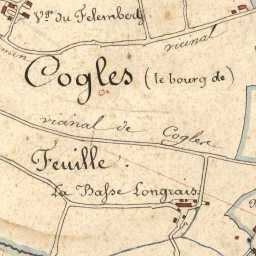 Vge du Telembert
vicinal
Cogles (le bourg de)
vicinal de Cogles
Feuille
La Basse Longrais